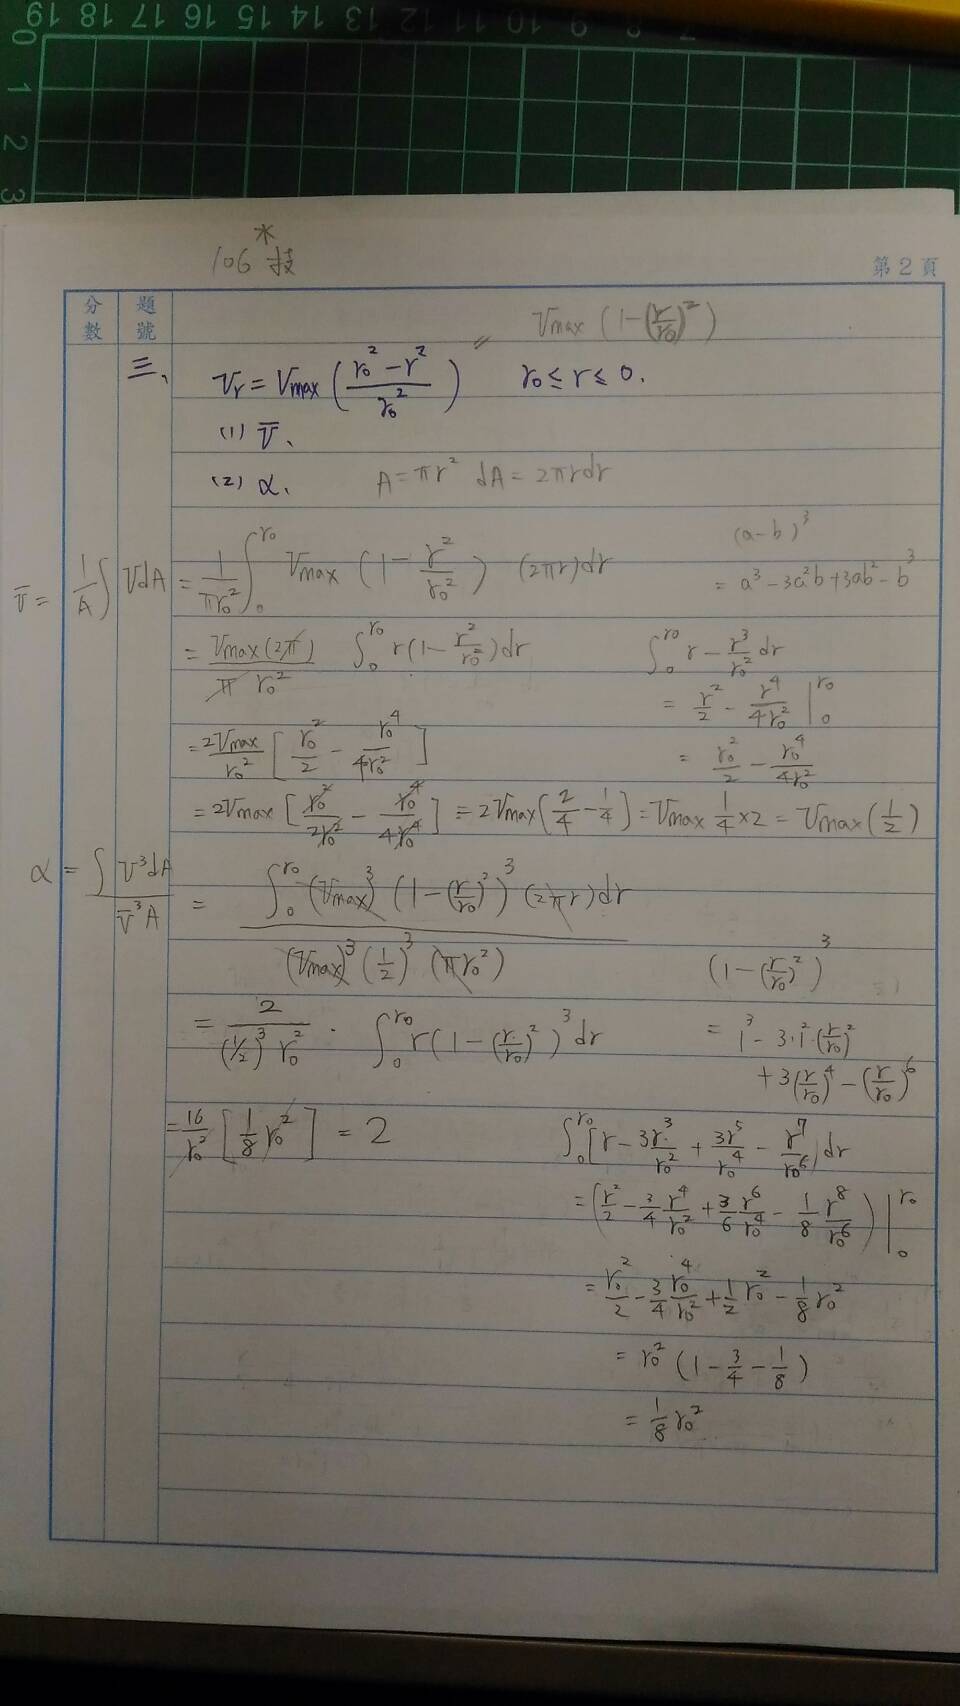 19 18 17 16 15 14 13 12 11 10 9 8 7
0
1
2
3
*
106 技
第 2 頁
分數
題號
Vmax (1-(r/r₀)²)
三、 Vr = Vmax ( (r₀² - r²) / r₀² ) r₀ ≤ r ≤ 0.
(1) V̄、
(2) α. A = πr² dA = 2πrdr
(a-b)³
V̄ = 1/A ∫ VdA = 1/(πr₀²) ∫₀^r₀ Vmax (1 - r²/r₀²) (2πr)dr
= a³ - 3a²b + 3ab² - b³
= Vmax(2π) / (π r₀²) ∫₀^r₀ r(1 - r²/r₀²)dr
∫₀^r₀ r - r³/r₀² dr
= r²/2 - r⁴/(4r₀²) |₀^r₀
= 2Vmax/r₀² [ r₀²/2 - r₀⁴/(4r₀²) ]
= r₀²/2 - r₀⁴/(4r₀²)
= 2Vmax [ r₀²/(2r₀²) - r₀⁴/(4r₀⁴) ] = 2Vmax ( 2/4 - 1/4 ] = Vmax 1/4 × 2 = Vmax (1/2)
α = ∫ V³dA / (V̄³A) = ∫₀^r₀ (Vmax)³ (1-(r/r₀)²)³ (2πr)dr / ( (Vmax)³ (1/2)³ (πr₀²) )
(1-(r/r₀)²)³
= 2/((1/2)³ r₀²) · ∫₀^r₀ r(1-(r/r₀)²)³dr
= 1³ - 3·1²·(r/r₀)²
+ 3(r/r₀)⁴ - (r/r₀)⁶
= 16/r₀² [ 1/8 r₀² ] = 2
∫₀^r₀ [r - 3r³/r₀² + 3r⁵/r₀⁴ - r⁷/r₀⁶)dr
= (r²/2 - 3/4 r⁴/r₀² + 3/6 r⁶/r₀⁴ - 1/8 r⁸/r₀⁶) |₀^r₀
= r₀²/2 - 3/4 r₀⁴/r₀² + 1/2 r₀² - 1/8 r₀²
= r₀² (1 - 3/4 - 1/8)
= 1/8 r₀²